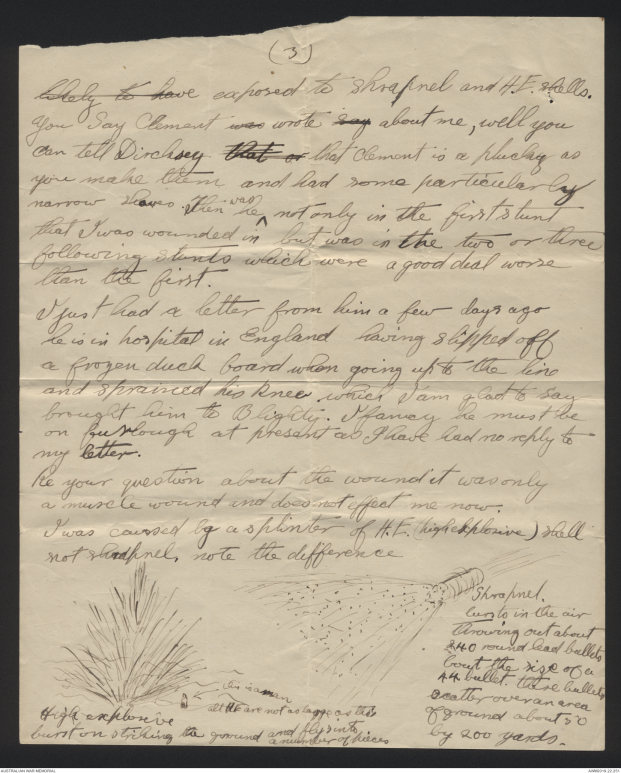 (3)
likely to have exposed to shrapnel and H.E. shells.
You Say Clement was wrote say about me, well you
can tell Dircksey that or that Clement is a plucky as
you make them and had some particularly
narrow shaves. Then was he not only in the first stunt
that I was wounded in but was in the two or three
following stunts which were a good deal worse
than the first.
I just had a letter from him a few days ago
he is in hospital in England having slipped off
a frozen duck board when going up to the line
and sprained his knee which I am glad to say
brought him to Blighty. I fancy he must be
on furlough at present as I have had no reply to
my letter.
Re your question about the wound it was only
a muscle wound and does not effect me now.
I was caused by a splinter of H.E. (high explosive) shell
not shrapnel, note the difference
Shrapnel.
bursts in the air
throwing out about
240 round lead bullets
bout the size of a
44 bullet these bullets
scatter over an area
of ground about 50
by 200 yards.
this is a man
all HE are not as large as this
High explosive
burst on striking the ground and flys into
a number of pieces
AUSTRALIAN WAR MEMORIAL